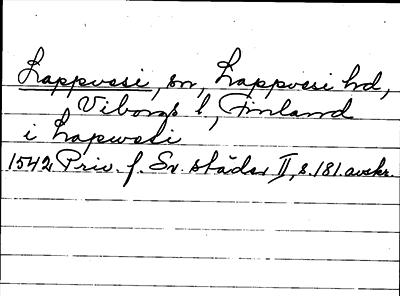 Lappvesi, sn, Lappvesi hd,
Viborgs l, Finland
i Lapwesi
1542 Priv. f. Sv. städer II, s. 181. avskr.